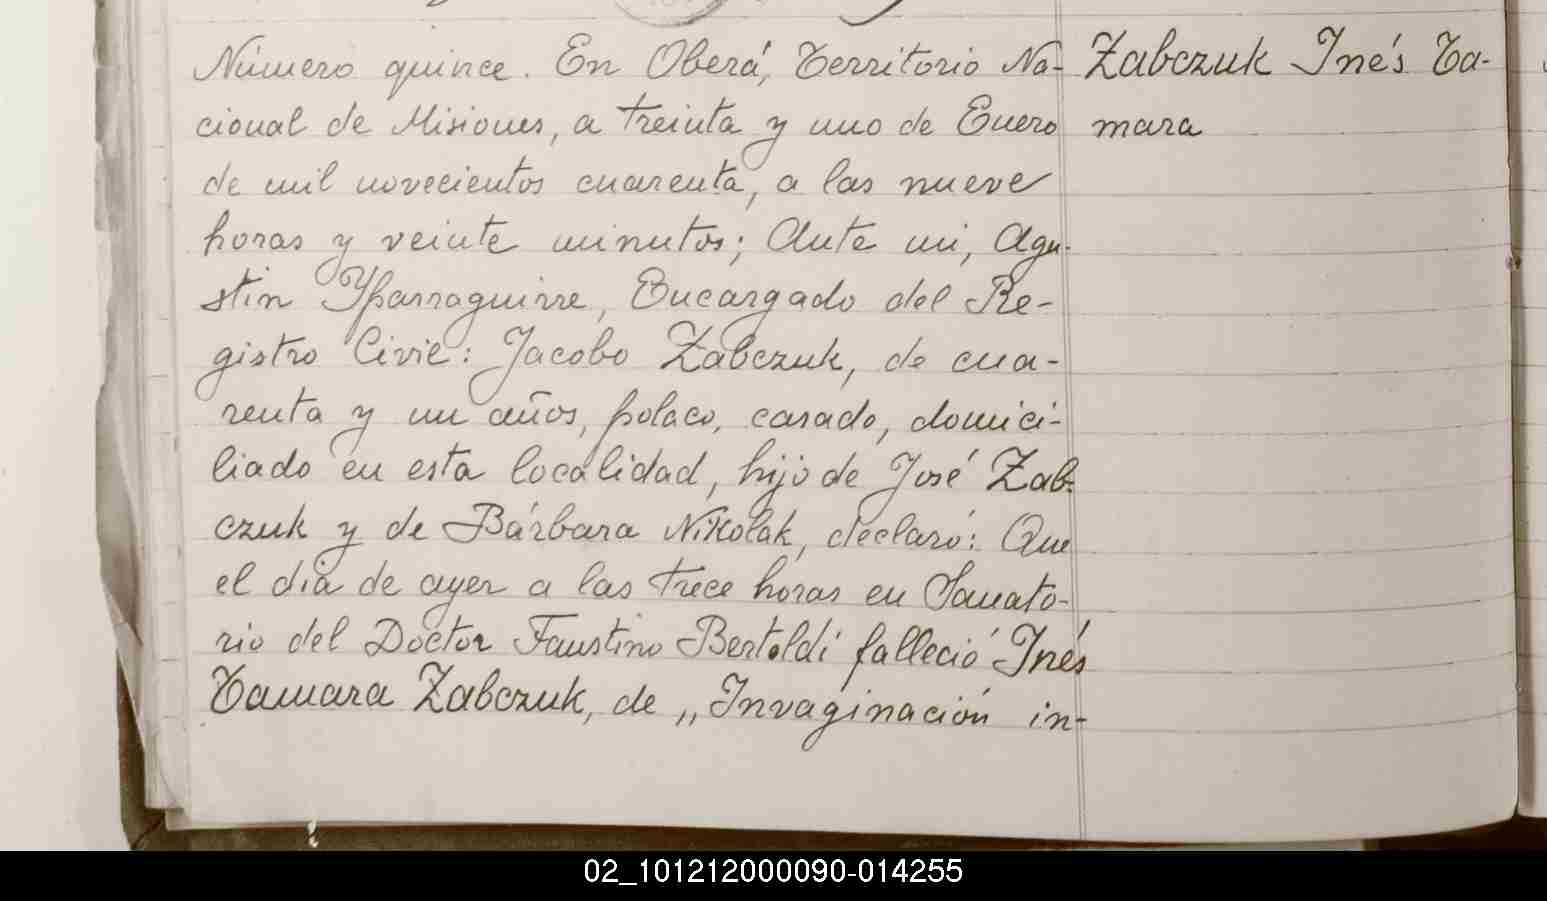 Número quince. En Oberá, Territorio Na- Zabczuk Inés Ta-
cional de Misiones, a treinta y uno de Enero mara
de mil novecientos cuarenta, a las nueve
horas y veinte minutos; Ante mi, Agu-
stin Yparraguirre, Encargado del Re-
gistro Civil: Jacobo Zabczuk, de cua-
renta y un años, polaco, casado, domici-
liado en esta localidad, hijo de José Zab-
czuk y de Bárbara Nikolak, declaró: Que
el dia de ayer a las trece horas en Sanato-
rio del Doctor Faustino Bertoldi falleció Inés
Tamara Zabczuk, de „Invaginación in-
02_101212000090-014255